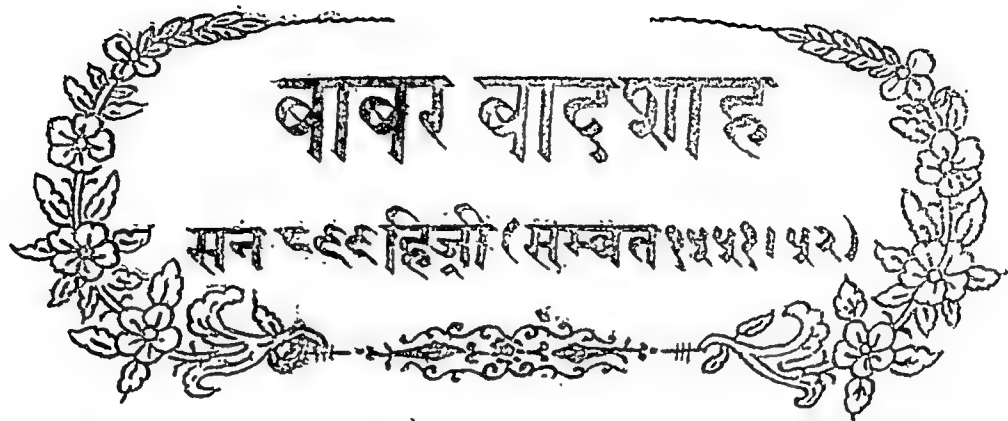 बाबर बादशाह
सन ८९९ हिज्री (सम्बत १५५१।५२)